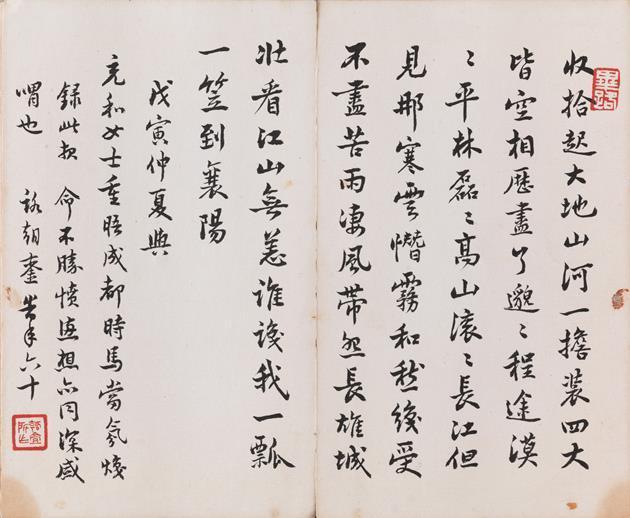 收拾起大地山河一擔裝四大
皆空相歷盡了邈〻程途漠
〻平林磊〻高山滾〻長江但
見那寒雲憯霧和愁織受
不盡苦雨淒風帶怨長雄城
壯看江山無恙誰識我一瓢
一笠到襄陽
戊寅仲夏與
充和女士重晤成都時馬當氛
錄此報 命不勝憤 想亦同深感
喟也 路朝鑾 時年六十